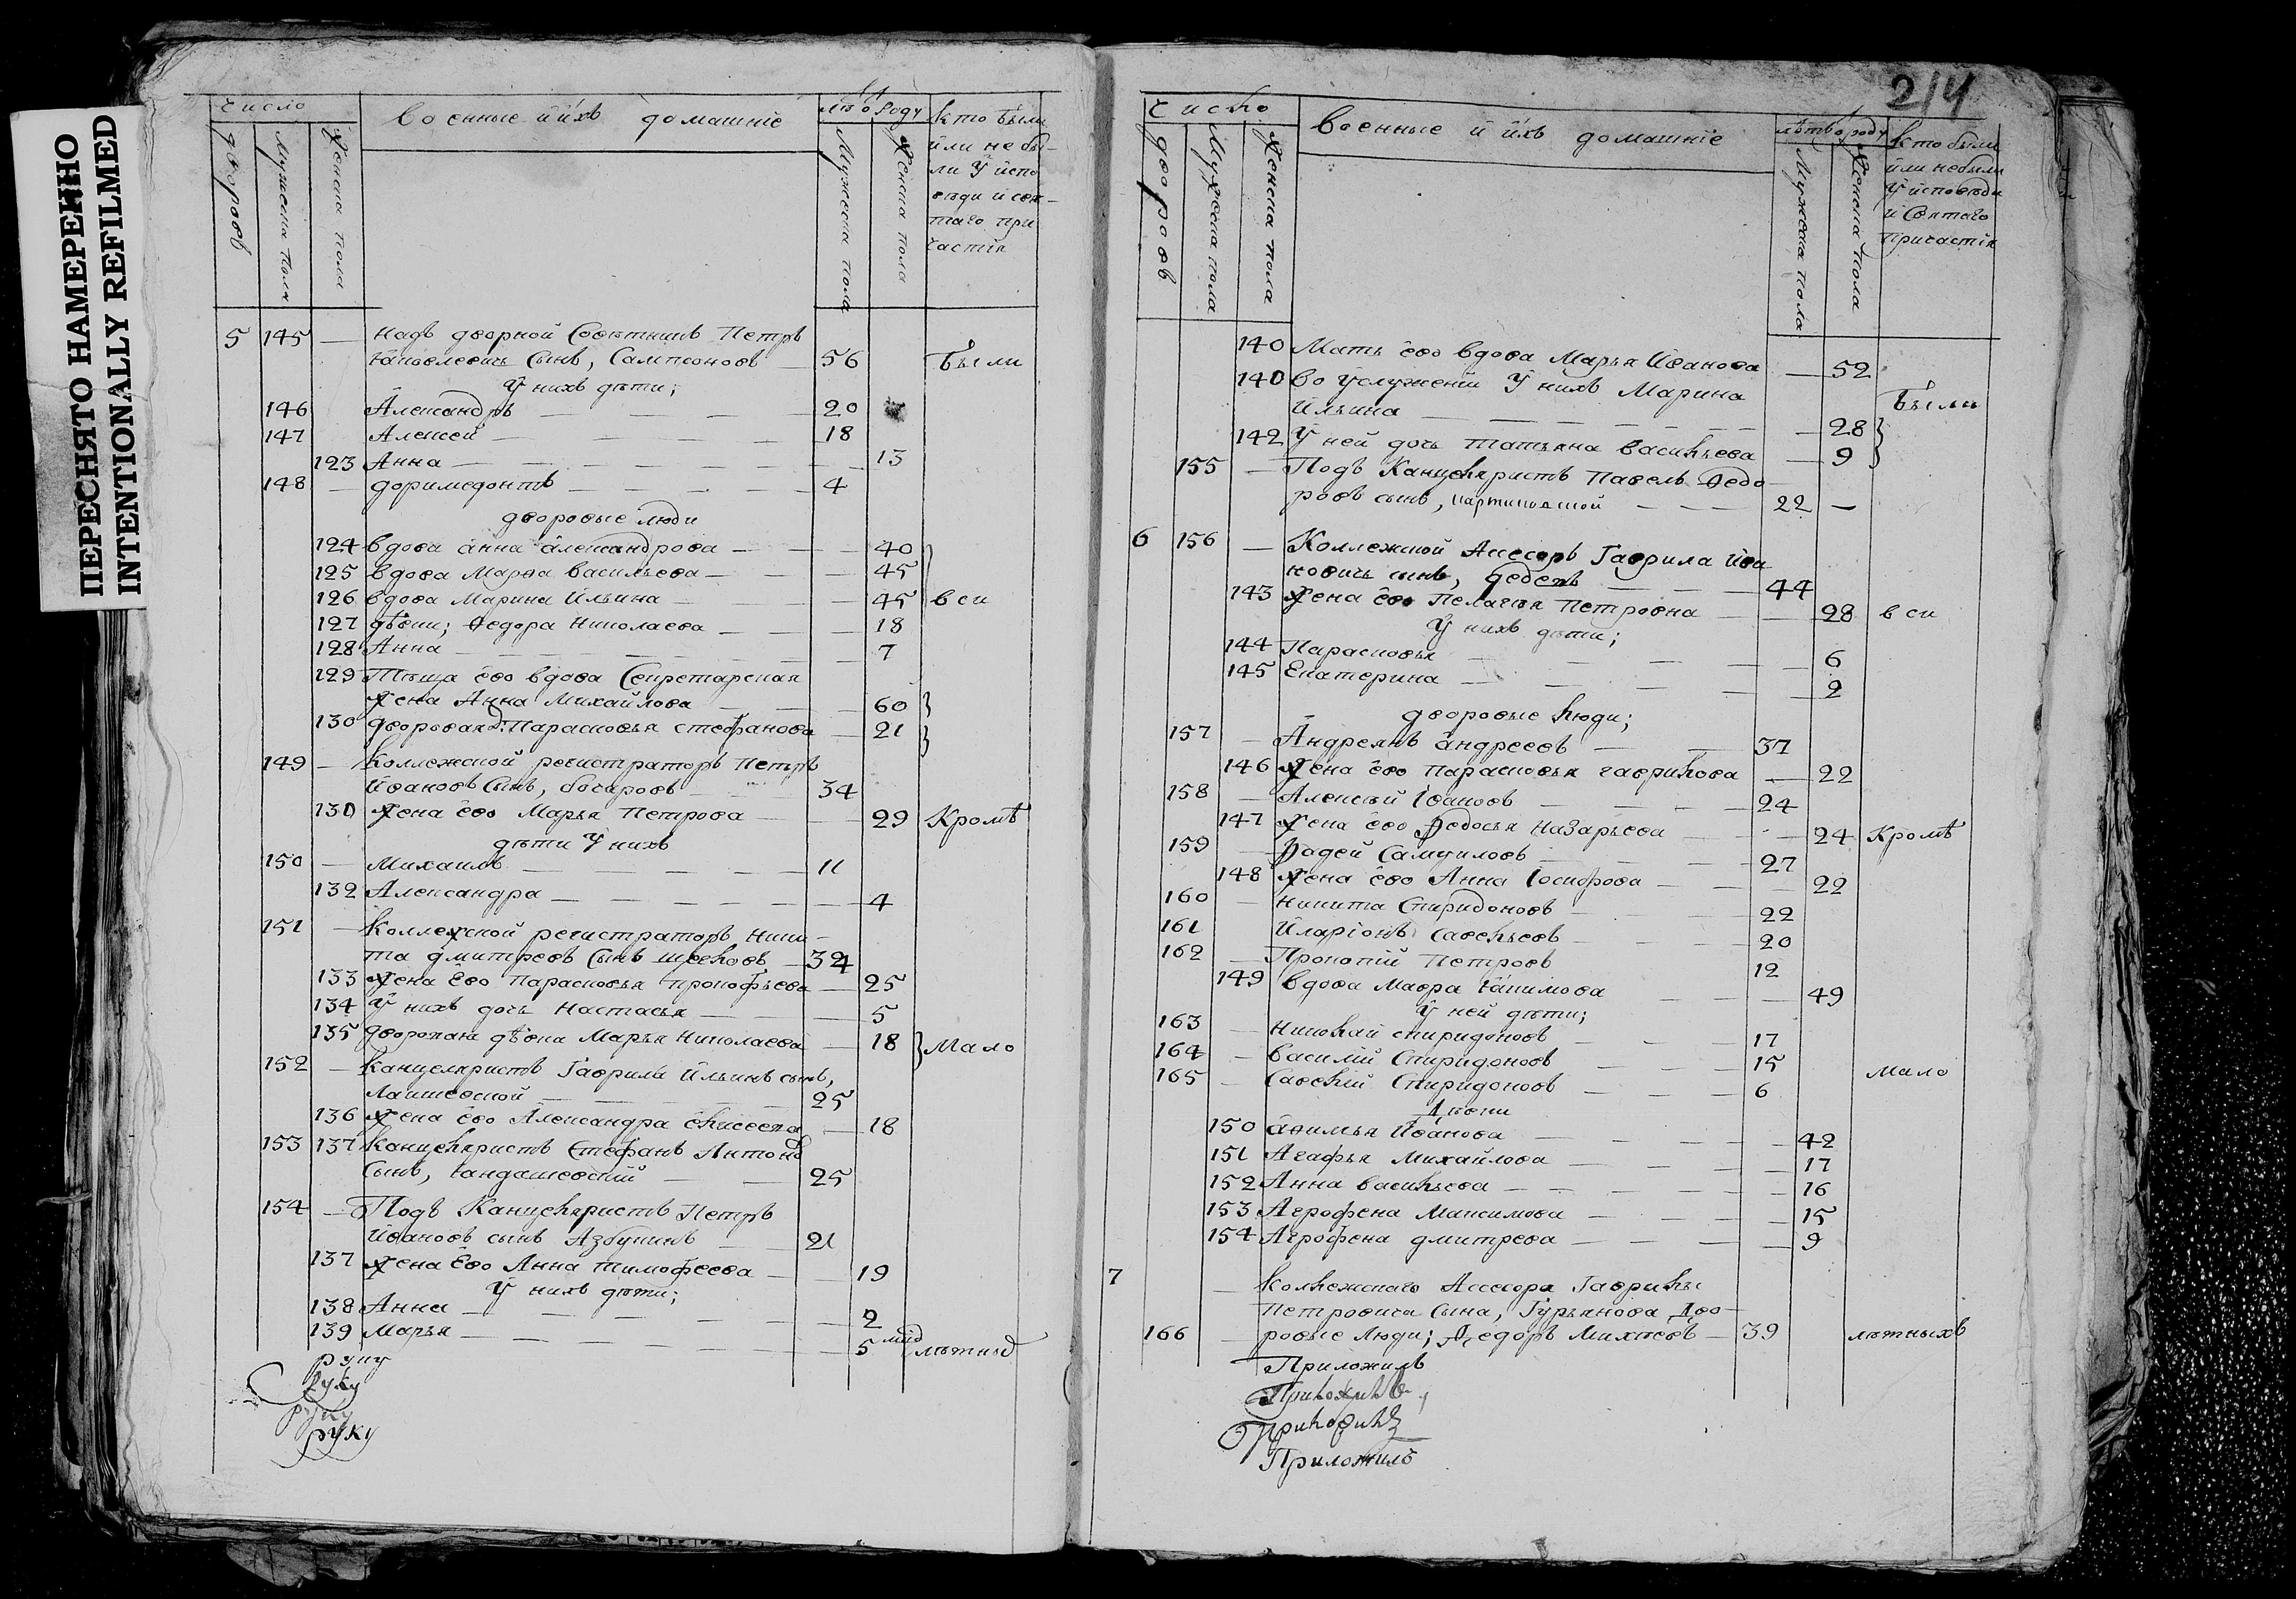 ПЕРЕСНЯТО НАМЕРЕННО
INTENTIONALLY REFILMED
число
дворовъ
Мужеска пола
Женска пола
военные и ихъ домашнїе
лѣт о роду
Мужеска пола
Женска пола
кто были
или не бы-
ли у испо
вѣди и свя-
таго при
частїя
5 145 — Надъ дворной Совѣтникъ Петръ
Яковлевичь Сынъ, Сампсоновъ — 56 Были
У нихъ дѣти;
146 Александръ — 20
147 Алексей — 18
123 Анна — 13
148 — доримедонтъ — 4
дворовые люди
124 вдова анна александрова — 40
125 вдова Марѳа васильева — 45
126 вдова Марина Ильина — 45 вси
127 дѣвки; Ѳедора Николаева — 18
128 Анна — 7
129 Тѣща ево вдова Секретарская
жена Анна Михайлова — 60
130 дворовая Парасковья стефанова — 21
149 — Коллежской регистраторъ Петръ
Ивановъ Сынъ, бочаровъ — 34
130 жена ево Марья Петрова — 29 Кромѣ
дѣти У нихъ
150 — Михаилъ — 11
132 Александра — 4
151 — Коллежской регистраторъ Ники-
та дмитреевъ Сынъ — 34
133 жена Ево Парасковья прокофьева — 25
134 У нихъ дочь Настасья — 5
135 дѣвка Марья Николаева — 18 Мало
152 — Канцеляристъ Гаврила Ильинъ сынъ,
25
136 жена ево Александра елисеева — 18
153 137 Канцеляристъ Стефанъ Антоно
Сынъ, — 25
154 — Подъ Канцеляристъ Петръ
Ивановъ сынъ Азбукинъ — 21
137 жена Ево Анна тимофеева — 19
У нихъ дѣти;
138 Анна — 2
139 Марья — 5 лѣтныхъ
руку
руку
руку
руку
2/4
число
дворовъ
Мужеска пола
Женска пола
военные и ихъ домашнїе
лѣтъ о роду
Мужеска пола
Женска пола
Кто были
или небыли
у исповѣди
и Святаго
Причастїя
140 Мать ево вдова Марья Иванова — 52
140 во услуженіи У нихъ Марина
Ильина — 28 Были
142 У ней дочь татьяна васильева — 9
155 — Подъ Канцеляристъ Павелъ Ѳедо
ровъ сынъ, — 22 —
6 156 — Коллежской Асесоръ Гаврила Ива
новичь сынъ, — 44
143 жена ево Пелагея Петровна — 28 вси
У нихъ дѣти;
144 Парасковья — 6
145 Екатерина — 2
дворовые люди;
157 — Андреянъ андреевъ — 37
146 жена ево парасковья гаврилова — 22
158 — Алексѣй Ивановъ — 24
147 жена ево Ѳедосья Назарьева — 24 Кромѣ
159 — Фадей Самуиловъ — 27
148 жена ево Анна Іосифова — 22
160 — Никита Спиридоновъ — 22
161 Иларіонъ Савельевъ — 20
162 — Прокопій Петровъ 12
149 вдова Мавра Якимова — 49
У ней дѣти;
163 — Николай спиридоновъ — 17
164 — василій Спиридоновъ — 15
165 — Савелій Спиридоновъ — 6 мало
дѣвки
150 Иванова — 42
151 Агафья Михайлова — 17
152 Анна васильева — 16
153 Агрофена Максимова — 15
154 Агрофена дмитрева — 9
7 — Колежскаго Асесора Гаврилы
Петровича Сына, Гурьянова дво-
166 — ровые Люди; Ѳедоръ Михѣевъ — 39 лѣтныхъ
Приложилъ
Приложилъ
Приложилъ
Приложилъ